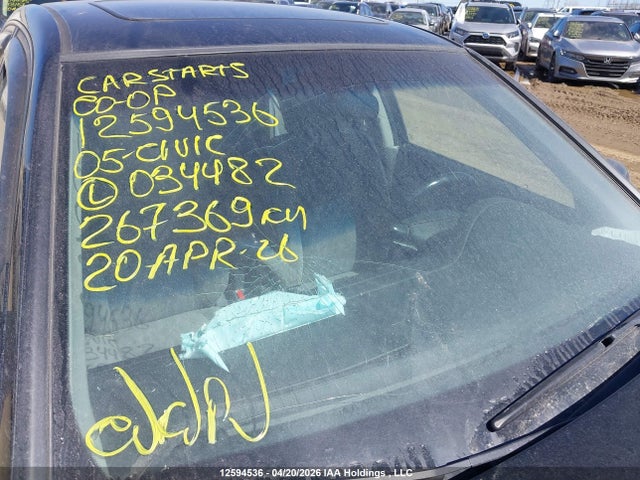 CAR STARTS
00-OP
12594536
05-CIVIC
Ⓛ 034482
267369 KM
20 APR-26
12594536 - 04/20/2026 IAA Holdings , LLC